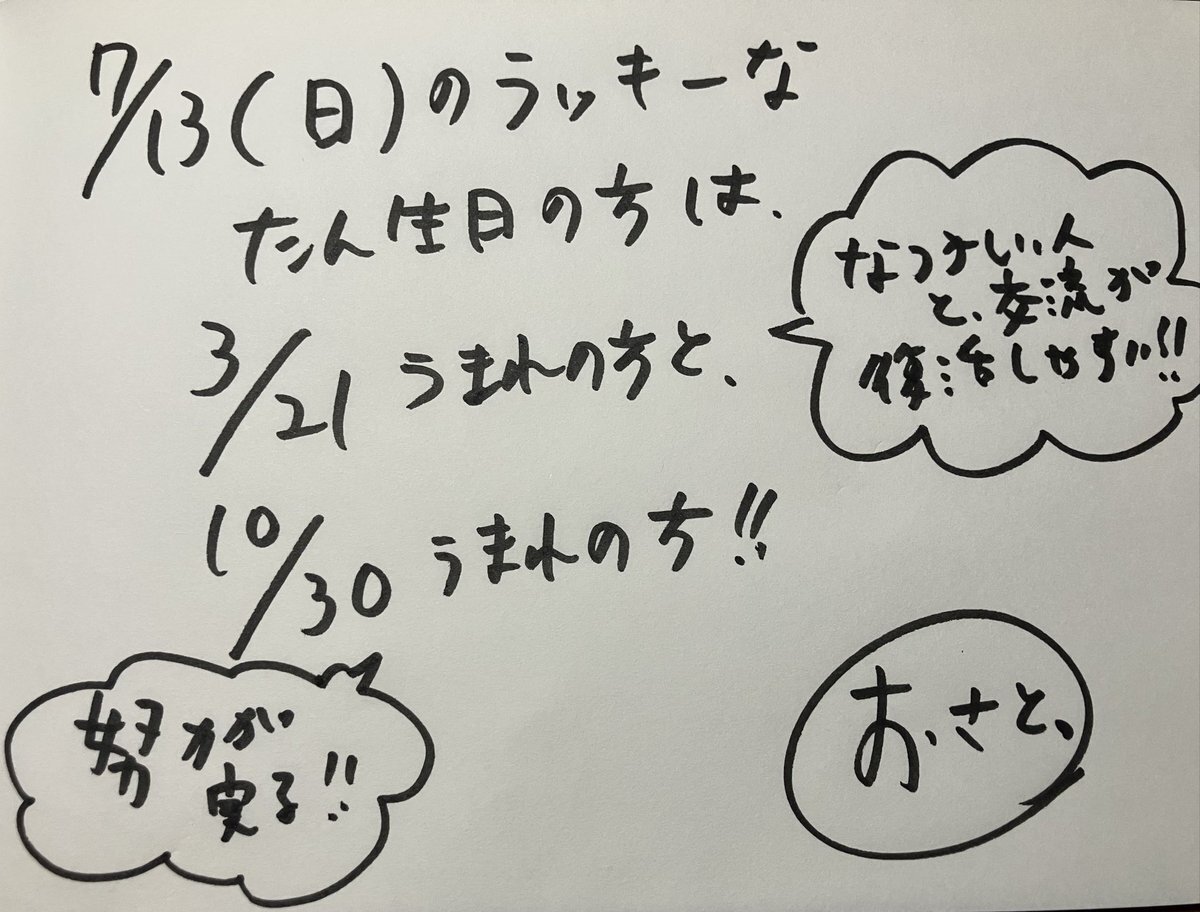 7/13(日)のラッキーな
たん生日の方は、
3/21 うまれの方と、
なつかしい人
と、交流が
復活しやすい!!
10/30 うまれの方!!
努力が
実る!!
おさと、